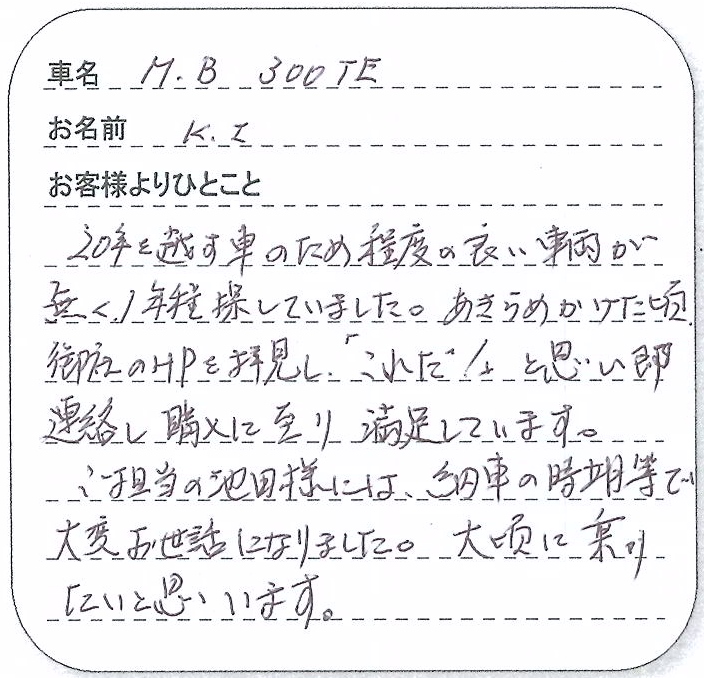 車名 M.B 300TE
お名前 K.I
お客様よりひとこと
20年を越す車のため程度の良い車両が
無く、1年程探していました。あきらめかけた頃、
御社のHPを拝見し、「これだ!」と思い即
連絡し購入に至り満足しています。
ご担当の池田様には、納車の時期等で
大変お世話になりました。大頃に乗り
たいと思いいます。